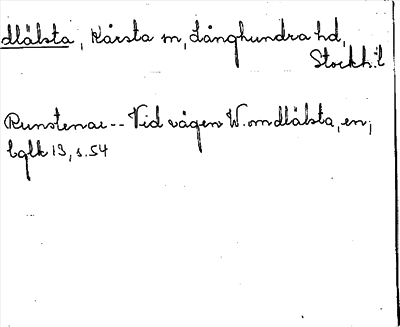 dlälsta, Kårsta sn, Långhundra hd,
Stockh:l
Runstenar -- Vid vägen W. om dlälsta, en,
bglk 13, s. 54